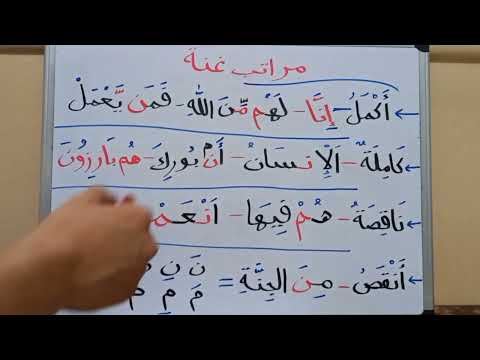 مراتب غنة
أَكْمَلُ - إِنَّا - لَهُم مِّنَ اللَّهِ - فَمَن يَّعْمَلْ
كَامِلَةٌ - اَلْإِنسَانُ - أَنۢ بُورِكَ - هُم بَارِزُونَ
نَاقِصَةٌ - هُمْ فِيهَا - اَنْعَمْ
أَنْقَصُ - مِنَ الْجِنَّةِ = نَ نِ
مَ مِ